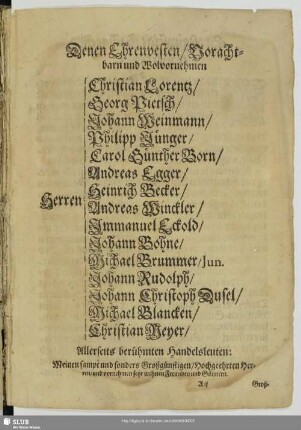 Denen Ehrenvesten/Voracht-
barn und Wolvornehmen
Christian Lorentz/
Georg Pietsch/
Johann Weinmann/
Philipp Jünger/
Carol Günther Born/
Andreas Egger/
Heinrich Becker/
Herren Andreas Winckler/
Immanuel Eckold/
Johann Bohne/
Michael Brummer/Jun.
Johann Rudolph/
Johann Christoph Dusel/
Michael Blancken/
Christian Meyer/
Allerseits berühmten Handelsleuten:
Meinen sampt und sonders Großgünstigen/Hochgeehrten Her-
ren und vornehmen sehr wehrten Freunden und Gönnern.
A ij Groß-
SLUB